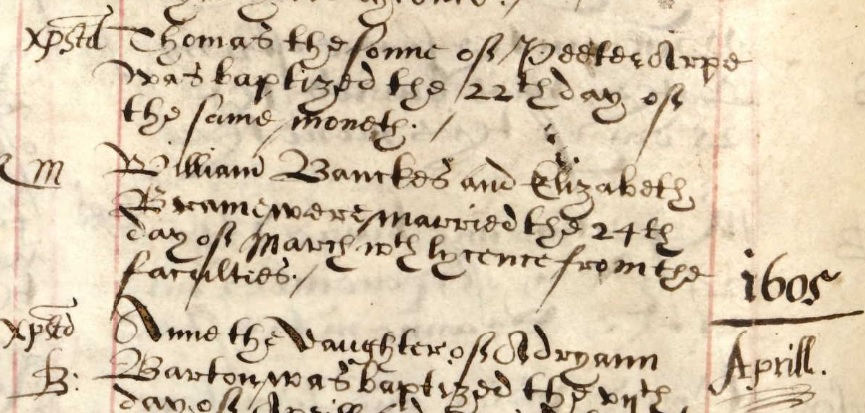 xpstd Thomas the sonne of Peeter Arpe
was baptized the 22th day of
the same moneth./
m William Banckes and Elizabeth
Brame were married the 24th
day of March wth lycence from the
faculties./
1605
Aprill.
xpstd Anne the daughter of Adryann
B: Barton was baptized the viith
day of Aprill